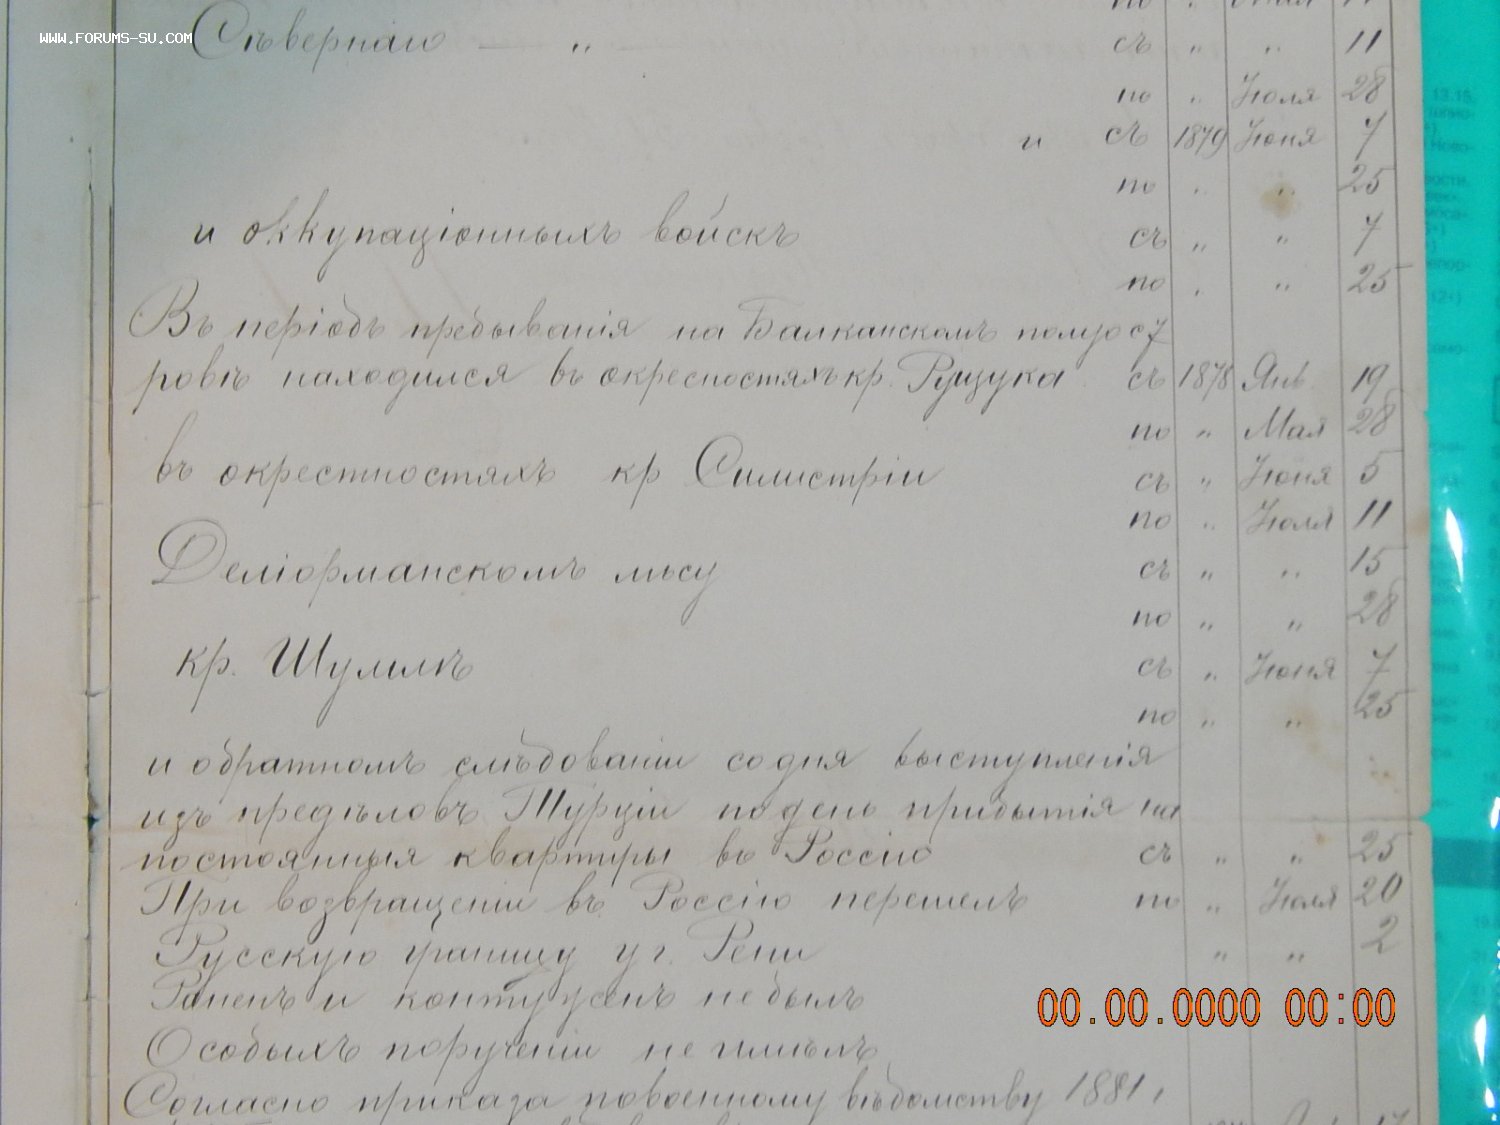 WWW.FORUMS-SU.COM
Сѣвернаго — „ съ „ „ 11
по „ Іюля 28
и съ 1879 Іюня 7
по „ „ 25
и оккупаціонныхъ войскъ съ „ „ 7
по „ „ 25
Въ періодъ пребыванія на Балканскомъ полуост
ровѣ находился въ окрестностяхъ кр. Рущука съ 1878 Янв. 19
по „ Мая 28
въ окрестностяхъ кр Силистріи съ „ Іюня 5
по „ Іюля 11
Деліорманскомъ лѣсу съ „ „ 15
по „ „ 28
кр. Шумлѣ съ „ Іюня 7
по „ „ 25
и обратномъ слѣдованіи со дня выступленія
изъ предѣловъ Турціи по день прибытія на
постоянныя квартиры въ Россію съ „ „ 25
При возвращеніи въ Россію перешелъ по „ Іюля 20
Русскую границу у г. Рени „ „ 2
Раненъ и контуженъ не былъ
00.00.0000 00:00
Особыхъ порученій не имѣлъ
Согласно приказа по военному вѣдомству 1881 г